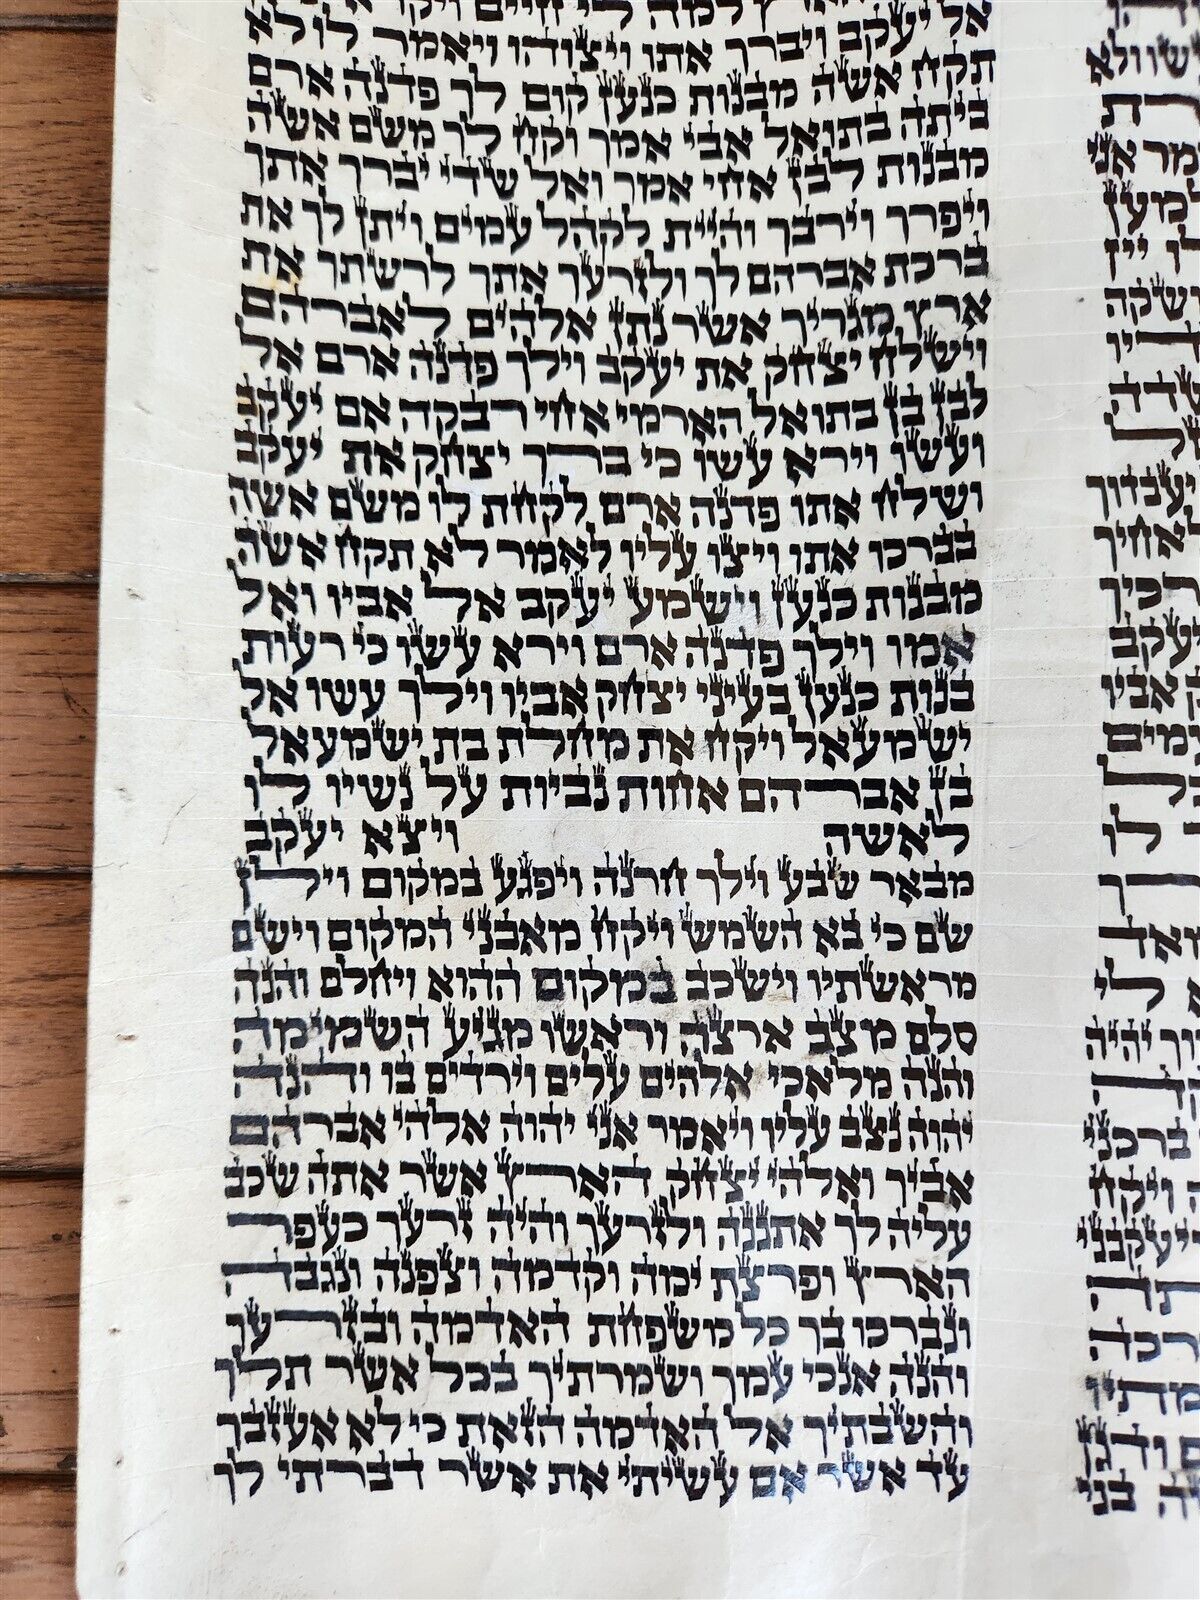 ולא
אני
יין
יעבדוך
יעקב
אביו
לו
לי
יהיה
ברכני
ויקח
בני
למה לי חיים
אל יעקב ויברך אתו ויצוהו ויאמר לו לא
תקח אשה מבנות כנען קום לך פדנה ארם
ביתה בתואל אבי אמך וקח לך משם אשה
מבנות לבן אחי אמך ואל שדי יברך אתך
ויפרך וירבך והיית לקהל עמים ויתן לך את
ברכת אברהם לך ולזרעך אתך לרשתך את
ארץ מגריך אשר נתן אלהים לאברהם
וישלח יצחק את יעקב וילך פדנה ארם אל
לבן בן בתואל הארמי אחי רבקה אם יעקב
ועשו וירא עשו כי ברך יצחק את יעקב
ושלח אתו פדנה ארם לקחת לו משם אשה
בברכו אתו ויצו עליו לאמר לא תקח אשה
מבנות כנען וישמע יעקב אל אביו ואל
אמו וילך פדנה ארם וירא עשו כי רעות
בנות כנען בעיני יצחק אביו וילך עשו אל
ישמעאל ויקח את מחלת בת ישמעאל
בן אברהם אחות נביות על נשיו לו
לאשה ויצא יעקב
מבאר שבע וילך חרנה ויפגע במקום וילן
שם כי בא השמש ויקח מאבני המקום וישם
מראשתיו וישכב במקום ההוא ויחלם והנה
סלם מצב ארצה וראשו מגיע השמימה
והנה מלאכי אלהים עלים וירדים בו והנה
יהוה נצב עליו ויאמר אני יהוה אלהי אברהם
אביך ואלהי יצחק הארץ אשר אתה שכב
עליה לך אתננה ולזרעך והיה זרעך כעפר
הארץ ופרצת ימה וקדמה וצפנה ונגבה
ונברכו בך כל משפחת האדמה ובזרעך
והנה אנכי עמך ושמרתיך בכל אשר תלך
והשבתיך אל האדמה הזאת כי לא אעזבך
עד אשר אם עשיתי את אשר דברתי לך